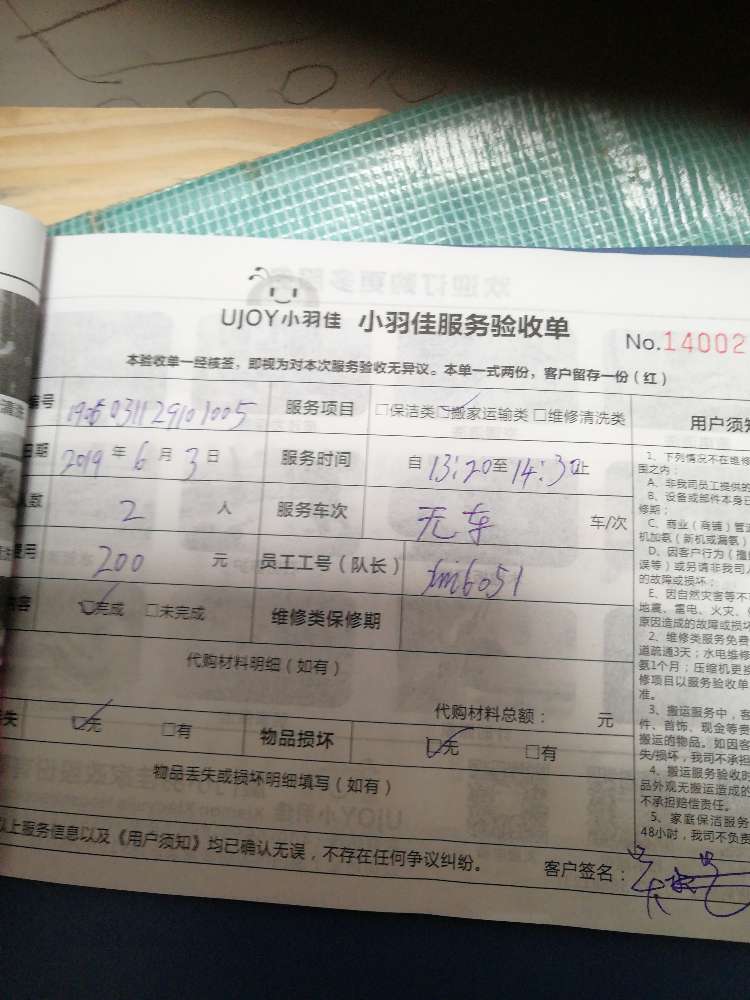 UJOY小羽佳 小羽佳服务验收单
No.14002
本验收单一经核签，即视为对本次服务验收无异议。本单一式两份，客户留存一份（红）
编号 服务项目 □保洁类 □搬家运输类 □维修清洗类
用户须知
日期 2019 年 6 月 3 日 服务时间 自 13:20 至 14:30 止
人数 2 人 服务车次 无车 车/次
费用 200 元 员工工号（队长） tm6051
内容 □完成 □未完成 维修类保修期
代购材料明细（如有）
代购材料总额： 元
失 □无 □有 物品损坏 □无 □有
物品丢失或损坏明细填写（如有）
以上服务信息以及《用户须知》均已确认无误，不存在任何争议纠纷。
客户签名：
1、下列情况不在维修
围之内：
A、非我司员工提供的
B、设备或部件本身已
修期；
C、商业（商铺）管道
机加氨（新机或漏氨）
D、因客户行为（撞
误等）或另请非我司人
的故障或损坏；
E、因自然灾害等不
地震、雷电、火灾、
原因造成的故障或损坏
2、维修类服务免费
道疏通3天；水电维修
氨1个月；压缩机更换
修项目以服务验收单
准。
3、搬运服务中，客
件、首饰、现金等贵
搬运的物品。如因客
失/损坏，我司不承担
4、搬运服务验收时
品外观无搬运造成的
不承担赔偿责任。
5、家庭保洁服务
48小时，我司不负责